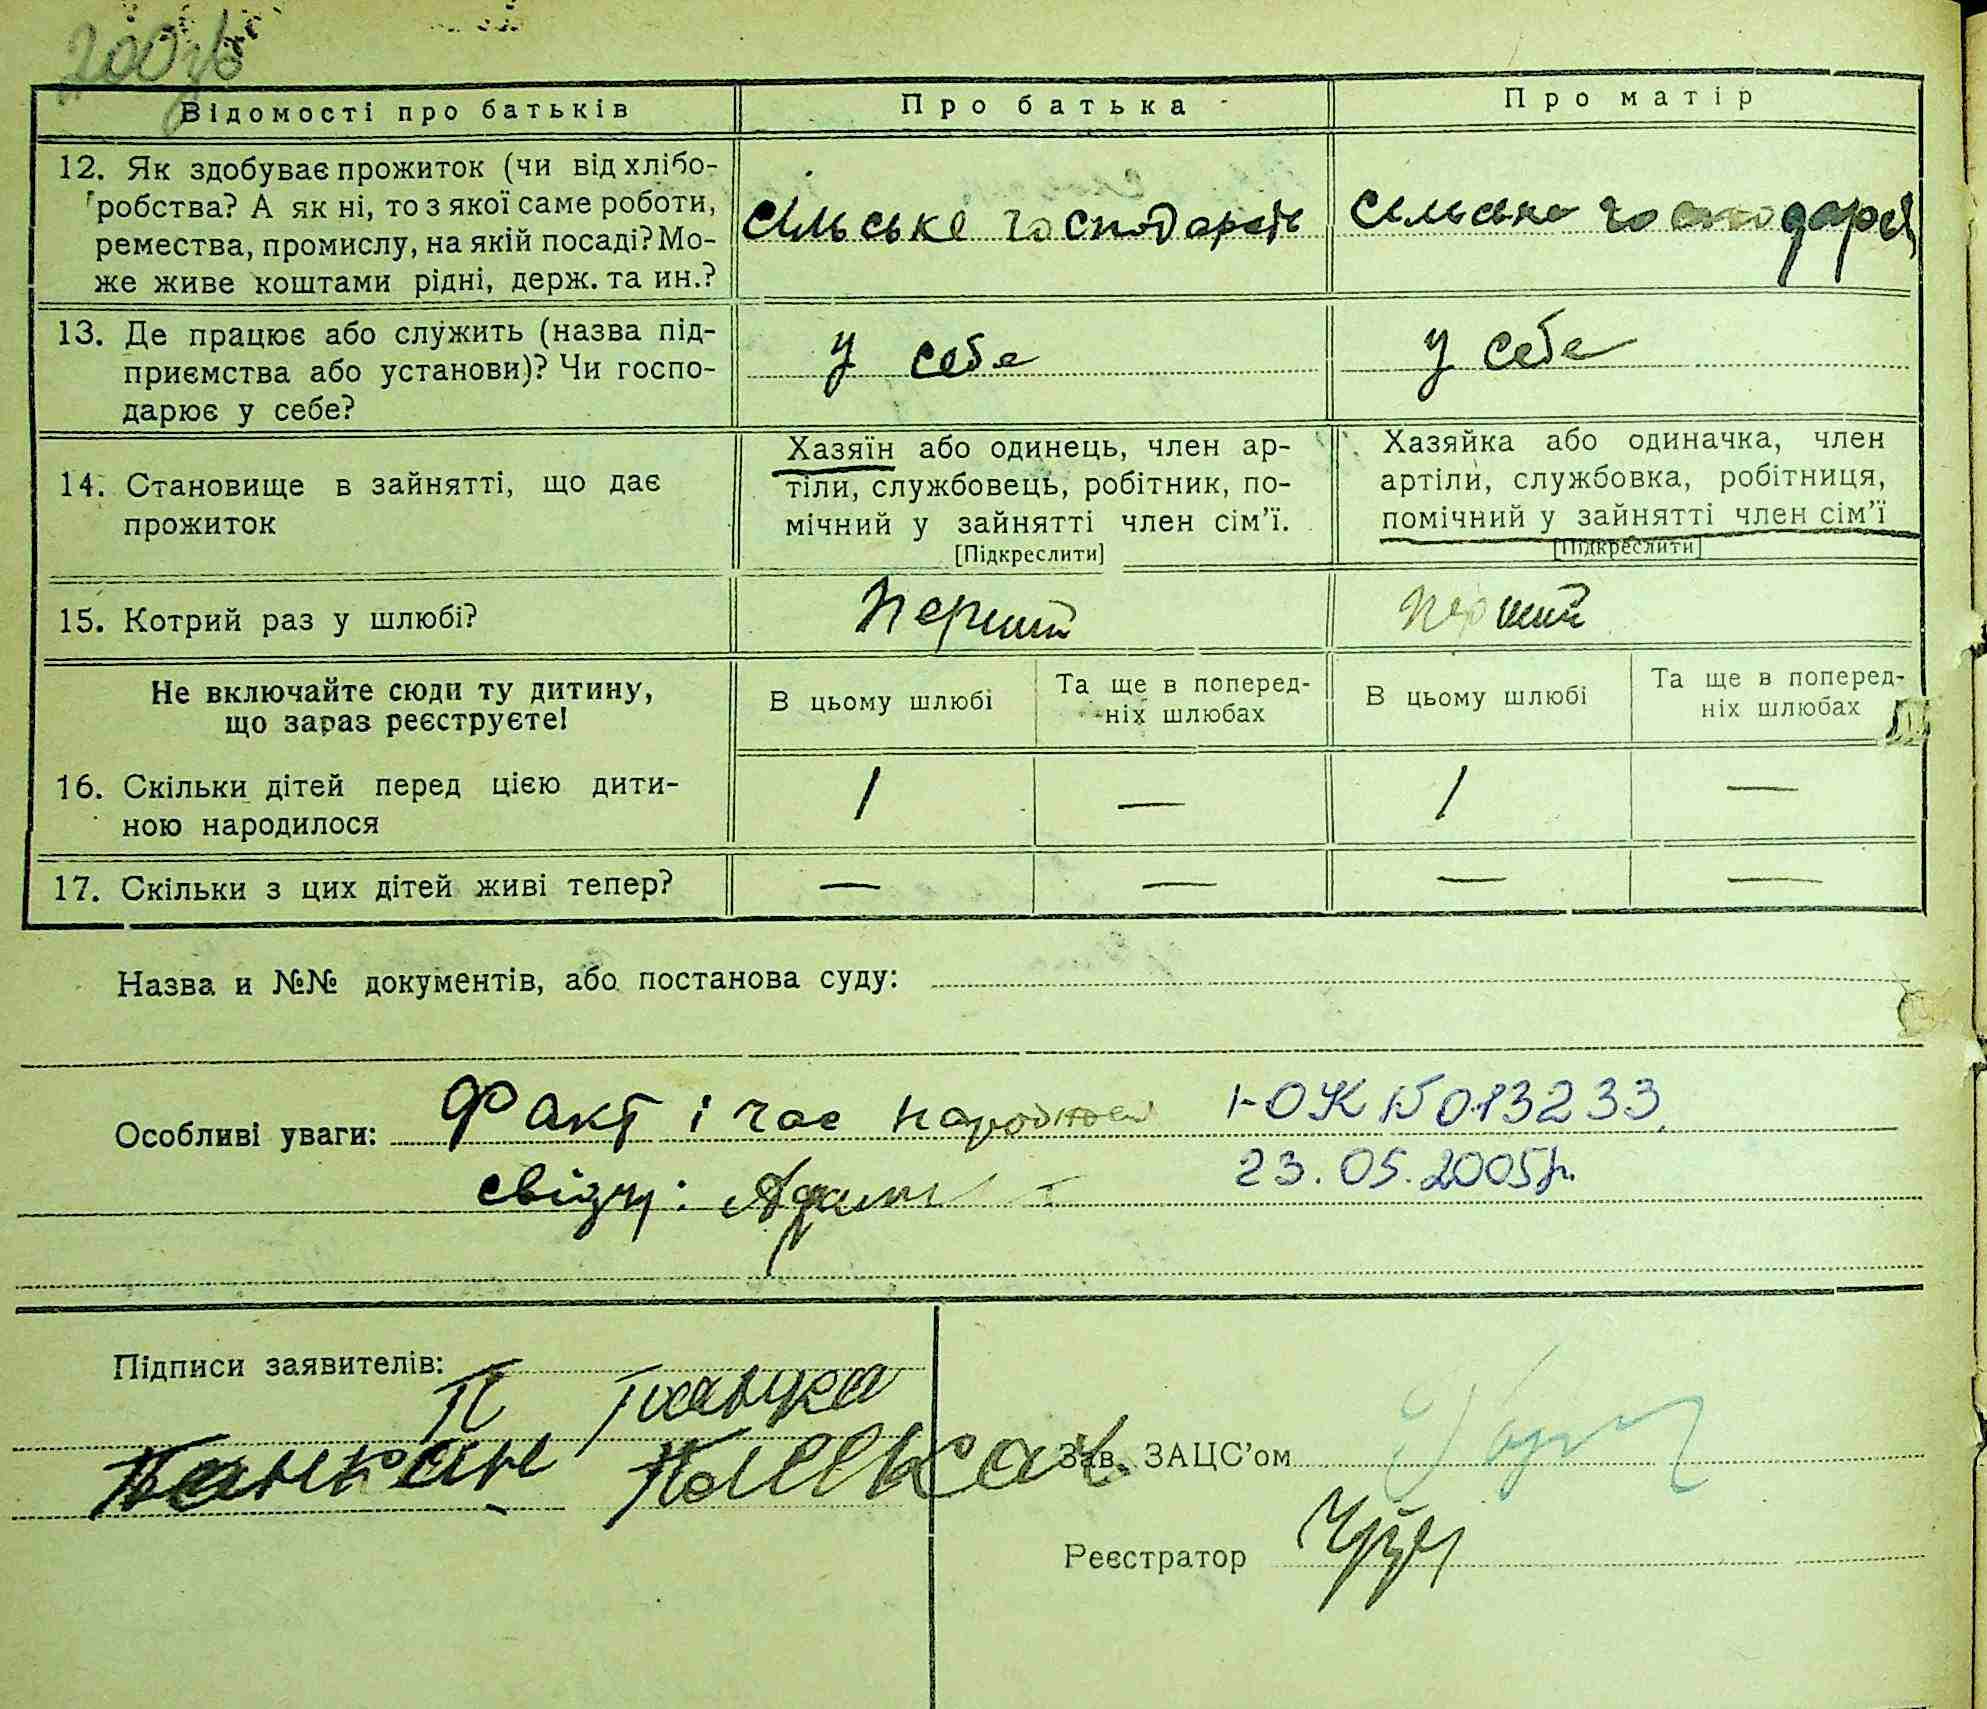 200зв
Відомості про батьків
Про батька
Про матір
12. Як здобуває прожиток (чи від хлібо-
робства? А як ні, то з якої саме роботи,
ремества, промислу, на якій посаді? Мо-
же живе коштами рідні, держ. та ин.?
сільське господарств
сільське господарст
13. Де працює або служить (назва під-
приємства або установи)? Чи госпо-
дарює у себе?
у себе
у себе
14. Становище в зайнятті, що дає
прожиток
Хазяїн або одинець, член ар-
тіли, службовець, робітник, по-
мічний у зайнятті член сім'ї.
[Підкреслити]
Хазяйка або одиначка, член
артіли, службовка, робітниця,
помічний у зайнятті член сім'ї
[Підкреслити]
15. Котрий раз у шлюбі?
перший
перший
Не включайте сюди ту дитину,
що зараз реєструєте!
В цьому шлюбі
Та ще в поперед-
ніх шлюбах
В цьому шлюбі
Та ще в поперед-
ніх шлюбах
16. Скільки дітей перед цією дити-
ною народилося
1
—
1
—
17. Скільки з цих дітей живі тепер?
—
—
—
—
Назва и №№ документів, або постанова суду:
Особливі уваги: Факт і час народження
І-ОЖ №013233
свідч:
23.05.2005р.
Підписи заявителів:
П
Зав. ЗАЦС'ом
Реєстратор